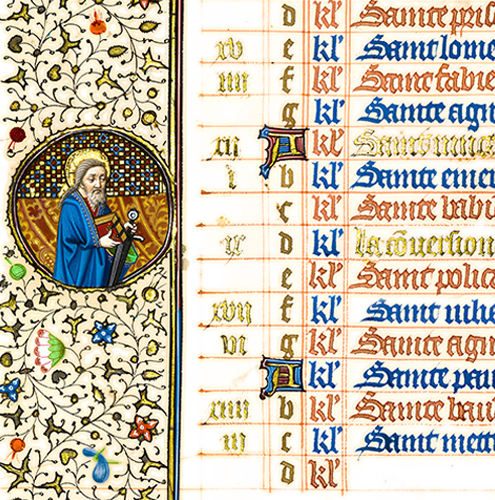 d kl' Sainte prisc
xv e kl' Saint lome
iiij f kl' Saint fabie
g kl' Sainte agn
xij A kl' Saint vince
i b kl' Sainte emer
c kl' Sainte babi
ix d kl' La cōuersion
e kl' Saint polica
xvij f kl' Saint iulie
vi g kl' Sainte agn
A kl' Sainte pau
xiiij b kl' Sainte bau
iij c kl' Saint metr
d kl'